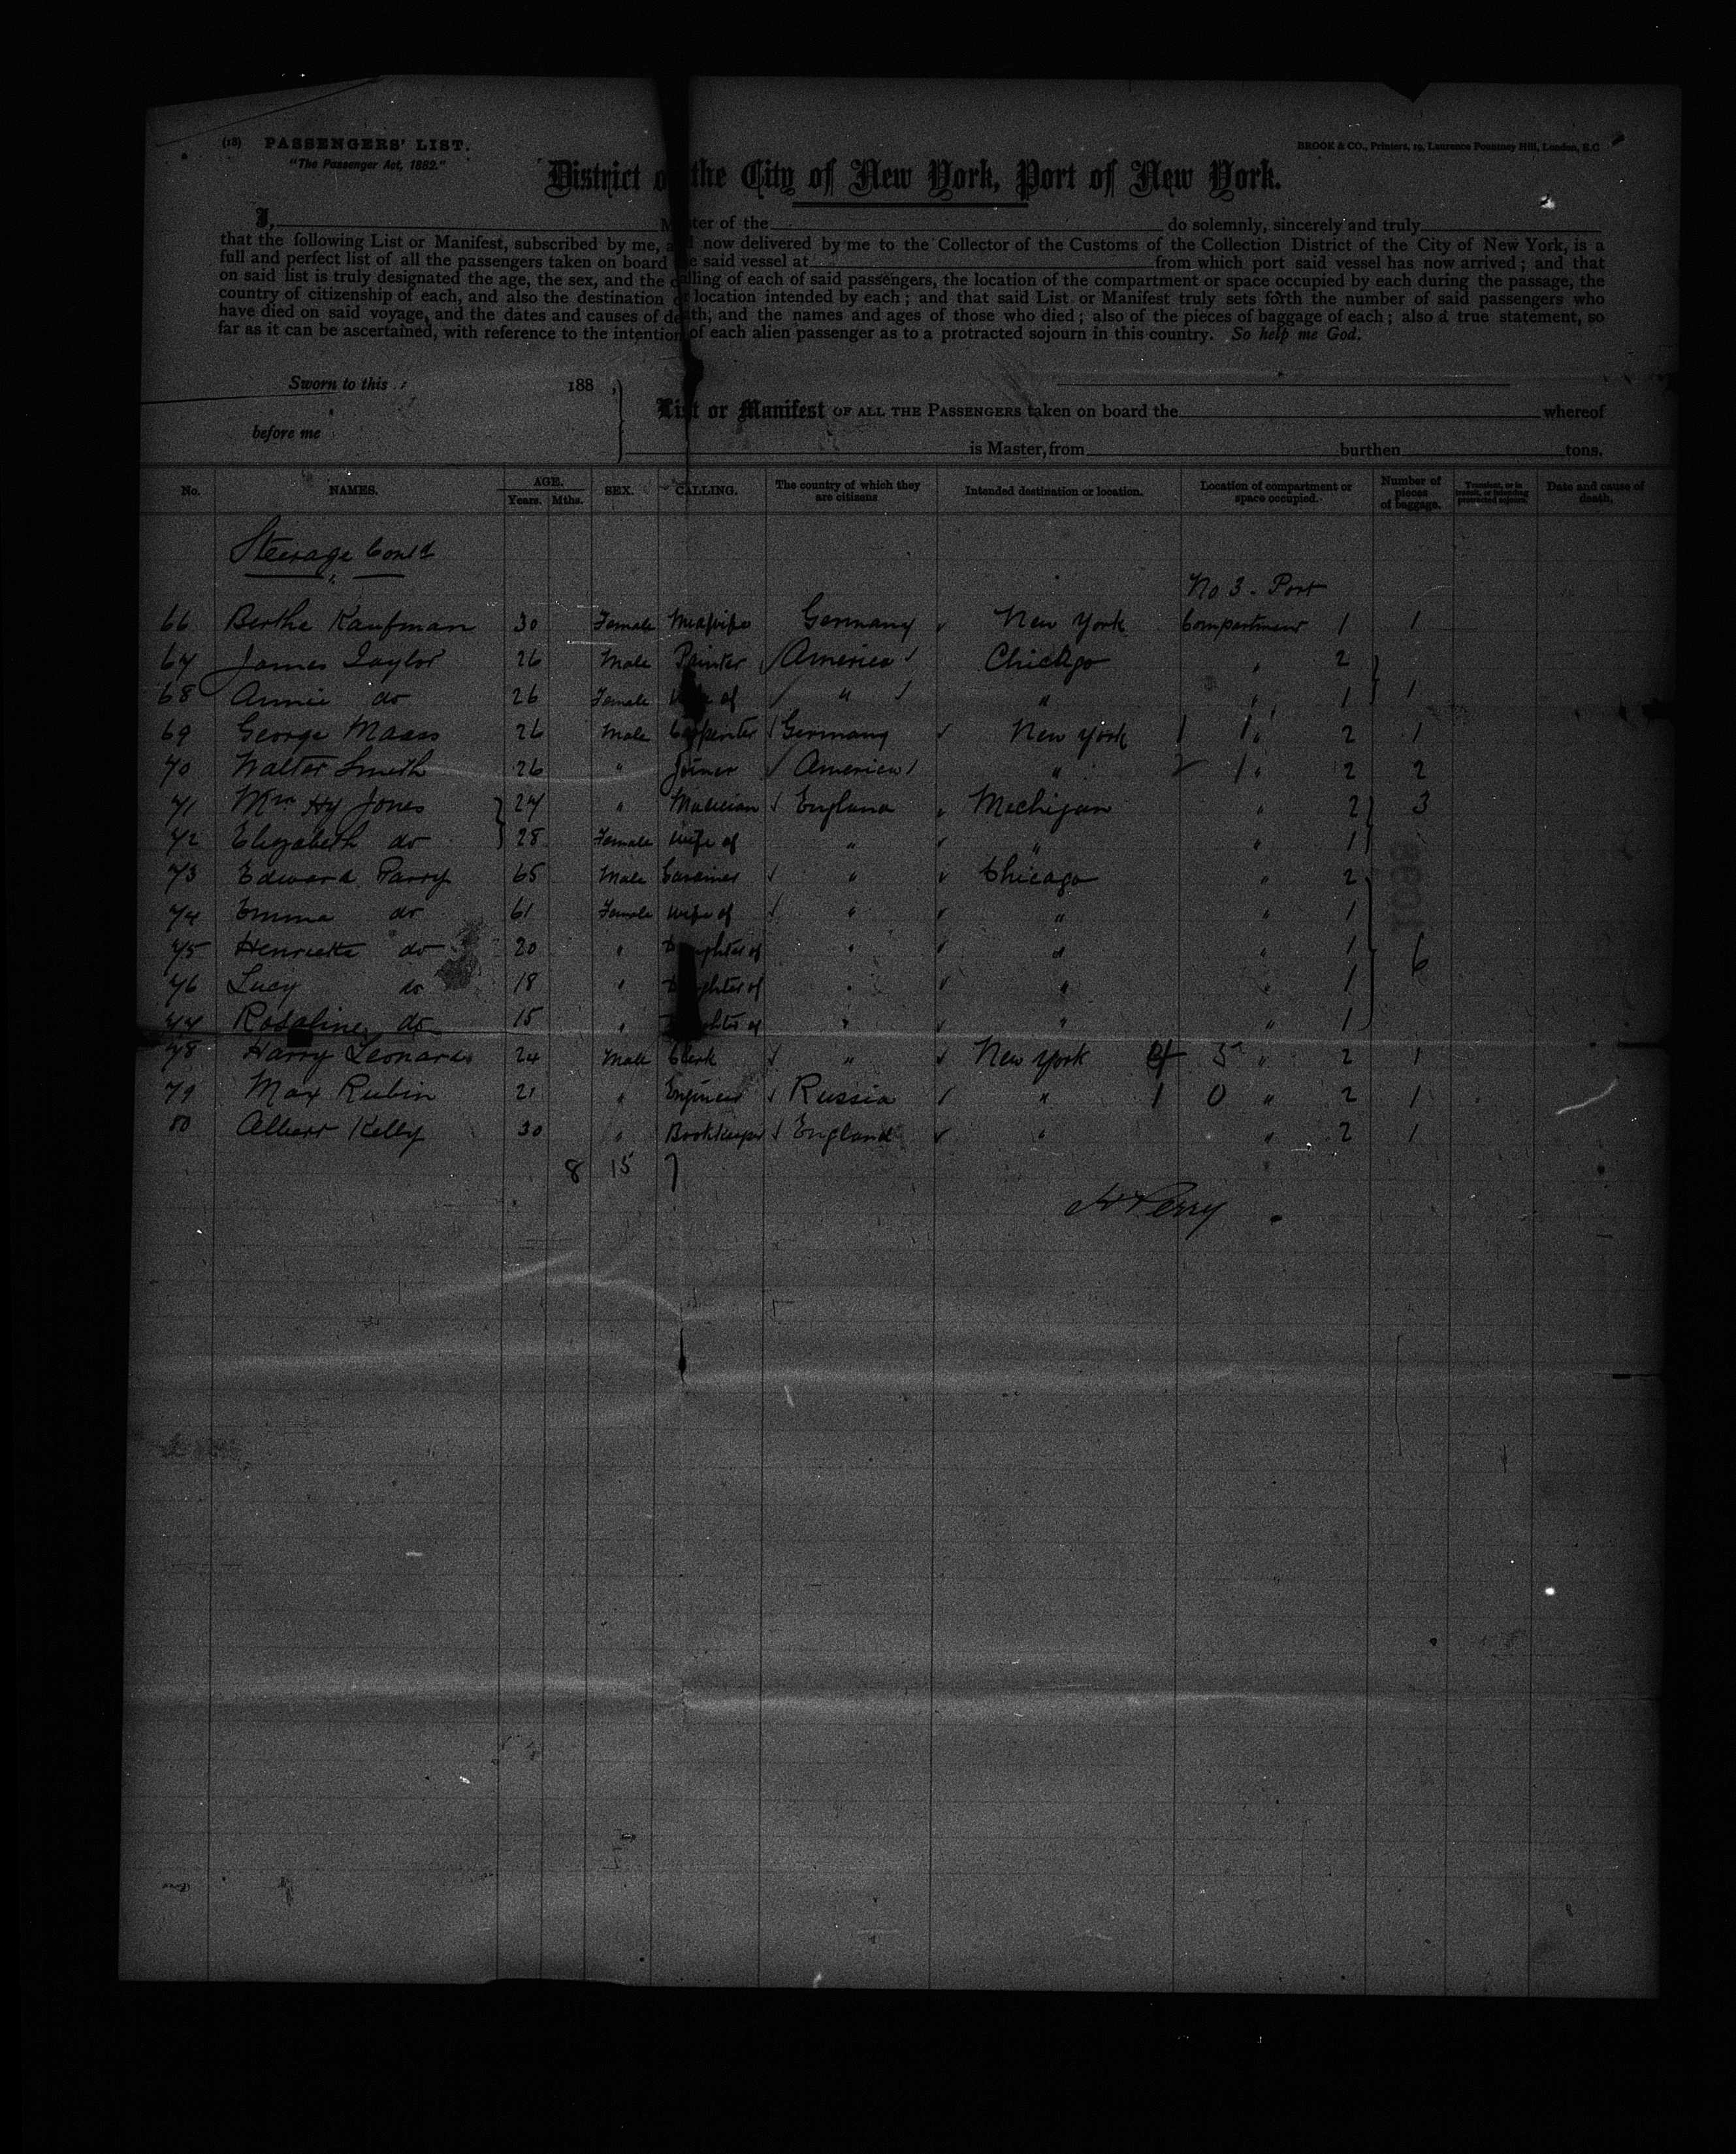 (18) PASSENGERS' LIST.
"The Passenger Act, 1882."
BROOK & CO., Printers, 19, Laurence Pountney Hill, London, E.C
District of the City of New York, Port of New York.
I, Master of the do solemnly, sincerely and truly
that the following List or Manifest, subscribed by me, and now delivered by me to the Collector of the Customs of the Collection District of the City of New York, is a
full and perfect list of all the passengers taken on board the said vessel at from which port said vessel has now arrived; and that
on said list is truly designated the age, the sex, and the calling of each of said passengers, the location of the compartment or space occupied by each during the passage, the
country of citizenship of each, and also the destination or location intended by each; and that said List or Manifest truly sets forth the number of said passengers who
have died on said voyage, and the dates and causes of death, and the names and ages of those who died; also of the pieces of baggage of each; also a true statement, so
far as it can be ascertained, with reference to the intention of each alien passenger as to a protracted sojourn in this country. So help me God.
Sworn to this 188
List or Manifest OF ALL THE PASSENGERS taken on board the whereof
before me
is Master, from burthen tons.
No. NAMES. AGE. Years. Mths. SEX. CALLING. The country of which they are citizens Intended destination or location. Location of compartment or space occupied. Number of pieces of baggage. Transient, or in transit, or intending protracted sojourn. Date and cause of death.
Steerage Cont'd
No 3. Port
66 Berthe Kaufman 30 Female Germany New York Compartment 1 1
67 James Taylor 26 Male Painter America Chicago " 2
68 Annie do 26 Female Wife of " " " 1 1
69 George Maass 26 Male Carpenter Germany New York 1 1 " 2 1
70 Walter Smith 26 " Joiner America " 1 " 2 2
71 Wm Hy Jones 27 " Musician England Michigan " 2 3
72 Elizabeth do 28 Female Wife of " " " 1
73 Edward Parry 65 Male Gardiner " Chicago " 2
74 Emma do 61 Female Wife of " " " 1
75 Henrietta do 20 " Daughter of " " " 1 6
76 Lucy do 18 " Daughter of " " " 1
77 Rosaline do 15 " Daughter of " " " 1
78 Harry Leonard 24 Male Clerk " New York 5 " 2 1
79 Max Rubin 21 " Engineer Russia " 1 0 " 2 1
80 Albert Kelly 30 " Bookkeeper England " " 2 1
8 15 7
Perry